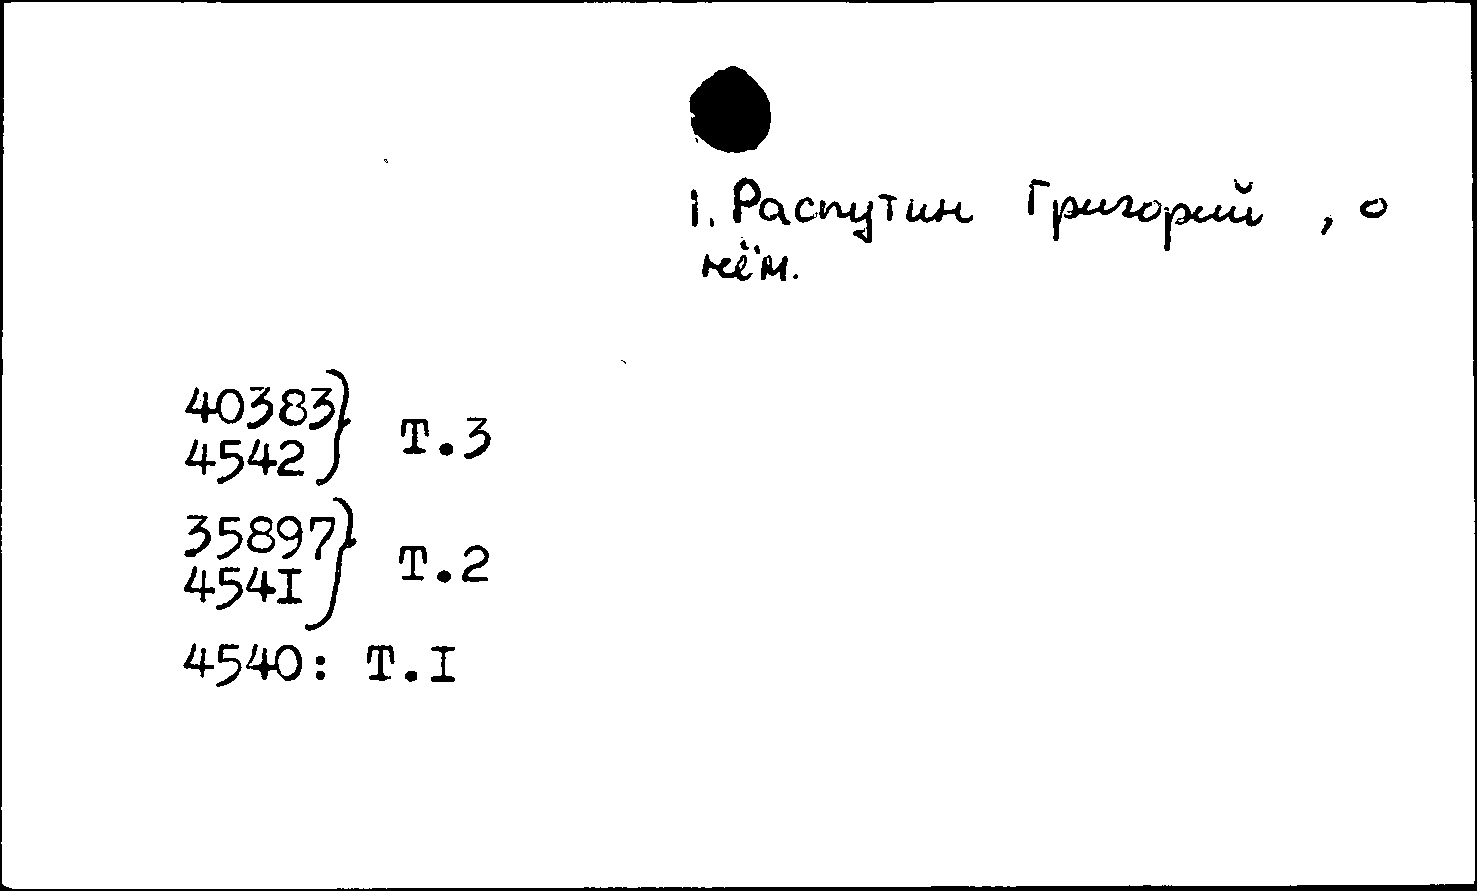 1. Распутин Григорий , о
нём.
40383
4542 } Т.3
35897
454I } Т.2
4540: Т.I